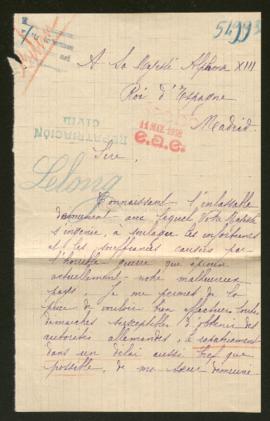 54993
A Sa Majesté Alphonse XIII
Roi d'Espagne
Madrid.
11 MAY. 1918
e.a.e.
REPATRIACIÓN
CIVIL
Sire,
Lelong
Connaissant l'inlassable
dévouement avec lequel Votre Majesté
s'ingénie, à soulager les infortunes
et les souffrances causées par
l'horrible guerre que
actuellement notre malheureux
pays. Je me permets de la
prier de vouloir bien effectuer toutes
démarches susceptibles, d'obtenir des
autorités allemandes, le rapatriement
dans un délai aussi bref que
possible, de ma sœur demeurée